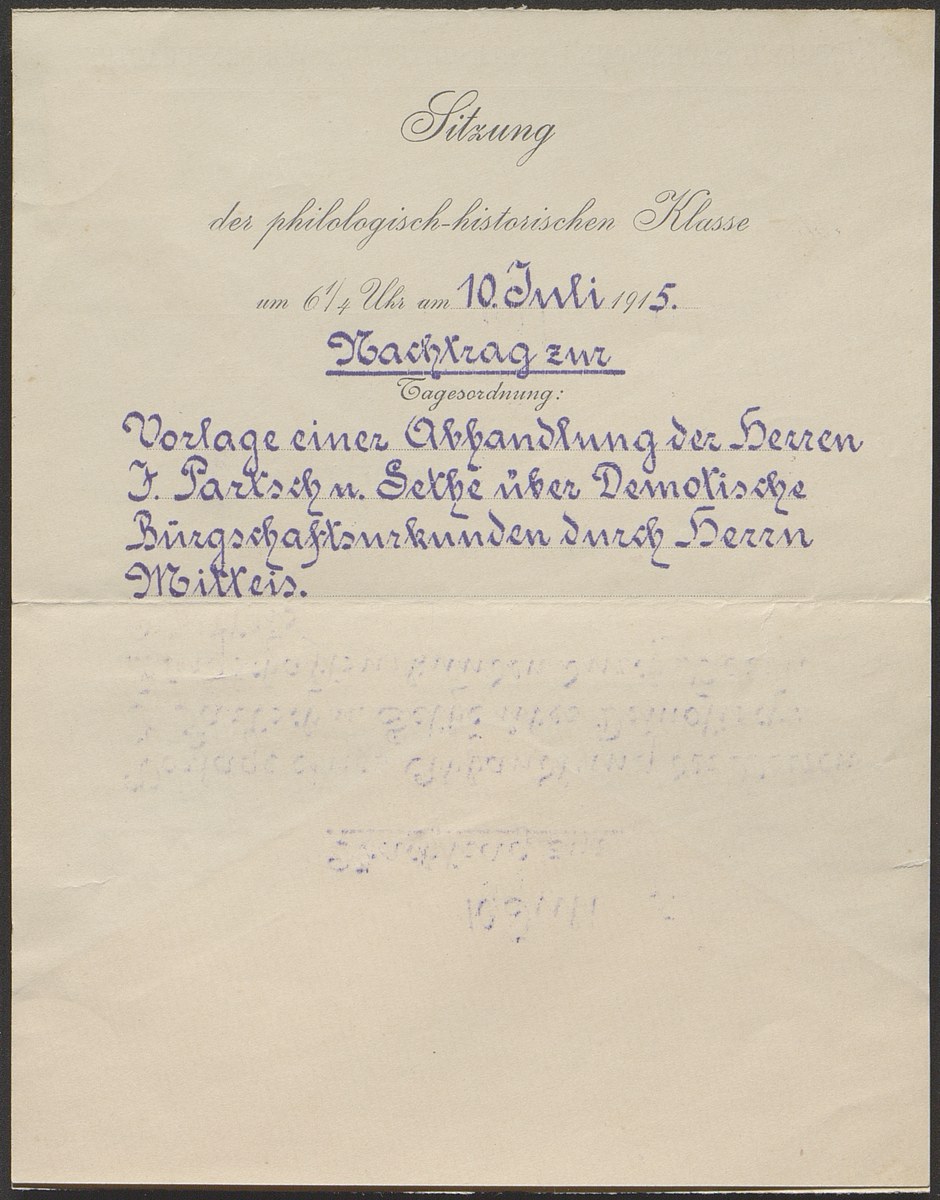 Sitzung
der philologisch-historischen Klasse
um 6 1/4 Uhr am 10. Juli 1915.
Nachtrag zur
Tagesordnung:
Vorlage einer Abhandlung der Herren
J. Partsch u. Sethe über Demotische
Bürgschaftsurkunden durch Herrn
Mitteis.